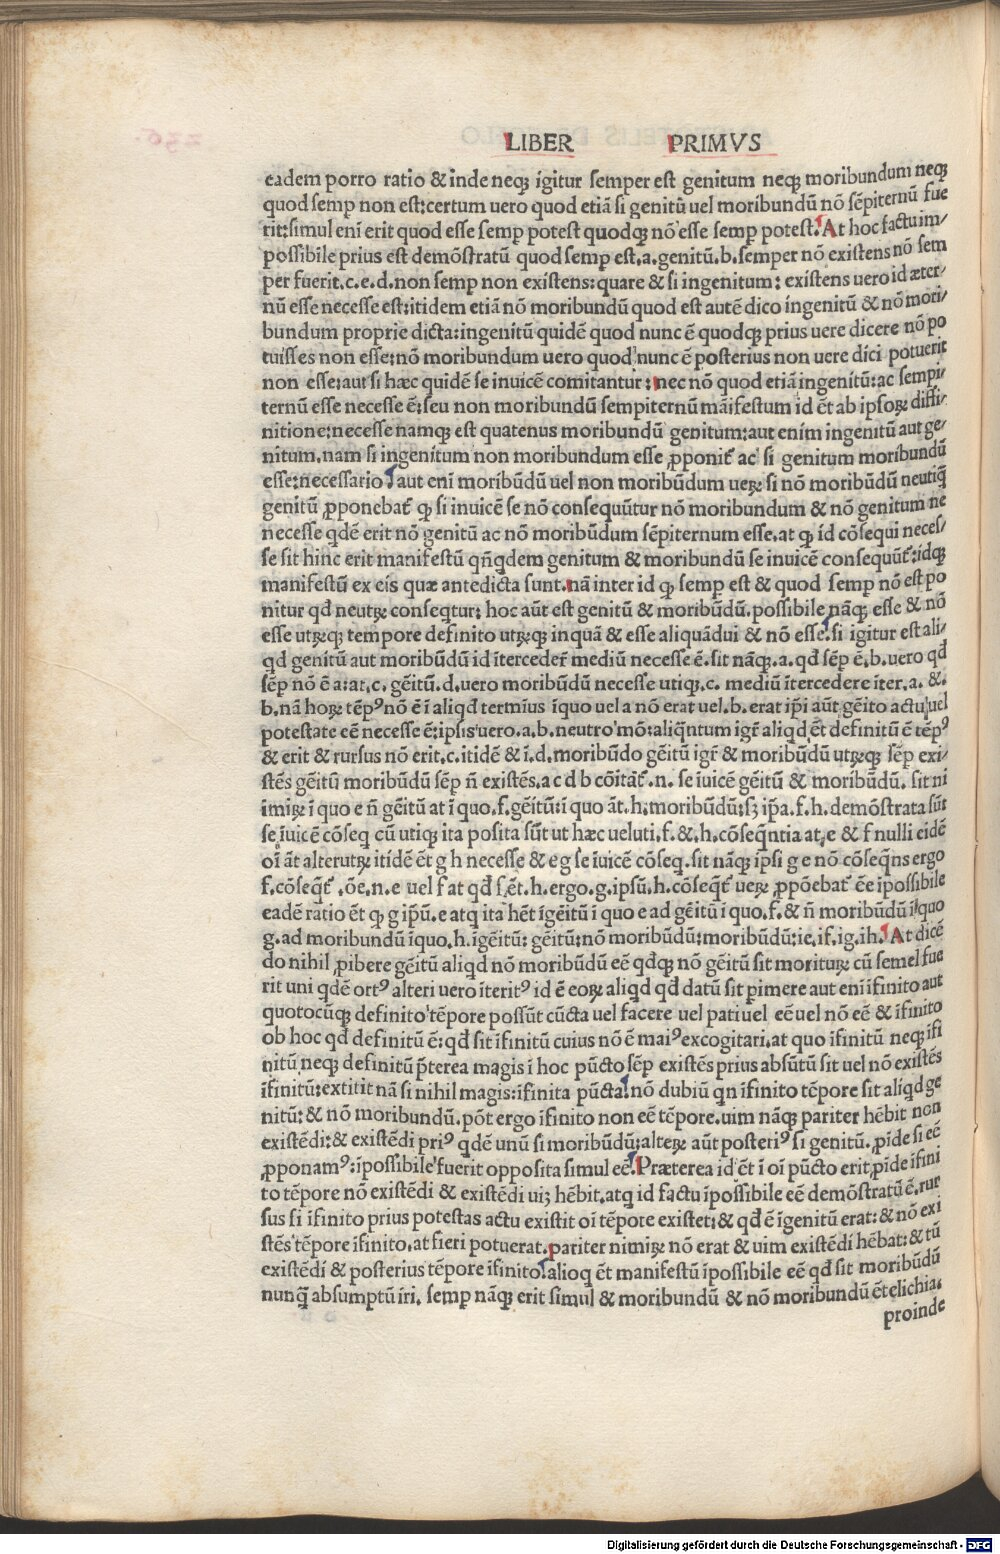 LIBER PRIMVS
eadem porro ratio & inde neqꝫ igitur semper est genitum neqꝫ moribundum neqꝫ
quod semꝑ non est:certum uero quod etiã si genitũ uel moribundũ nõ sẽpiternũ fue
rit:simul eni erit quod esse semꝑ potest quodqꝫ nõ esse semꝑ potest. At hoc factu im/
possibile prius est demõstratũ quod semꝑ est.a.genitũ.b.semper nõ existens nõ sem
per fuerit.c.e.d.non semꝑ non existens:quare & si ingenitum: existens uero id æter/
nũ esse necesse est:itidem etiã nõ moribundũ quod est autẽ dico ingenitũ & nõ mori/
bundum proprie dicta:ingenitũ quidẽ quod nunc ẽ quodqꝫ prius uere dicere nõ po
tuisses non esse:nõ moribundum uero quod nunc ẽ posterius non uere dici potuerit
non esse:aut si hæc quidẽ se inuicẽ comitantur: nec nõ quod etiã ingenitũ:ac sempi/
ternũ esse necesse ẽ:seu non moribundũ sempiternũ mãifestum id ẽt ab ipsoꝝ diffi/
nitione:necesse namqꝫ est quatenus moribundũ genitum:aut enim ingenitũ aut ge/
nitum.nam si ingenitum non moribundum esse ꝓponit̃ ac si genitum moribundũ
esse:necessario aut eni moribũdũ uel non moribũdum ueꝝ si nõ moribũdũ neutiq̃
genitũ ꝓponebat̃ qꝫ si inuicẽ se nõ consequũtur nõ moribundum & nõ genitum ne
necesse qdẽ erit nõ genitũ ac nõ moribũdum sẽpiternum esse.at qꝫ id cõsequi neces/
se sit hinc erit manifestũ qñqdem genitum & moribundũ se inuicẽ consequũt̃:idqꝫ
manifestũ ex eis quæ antedicta sunt.nã inter id qꝫ semꝑ est & quod semꝑ nõ est po
nitur qđ neutꝝ conseqtur: hoc aũt est genitũ & moribũdũ.possibile nãqꝫ esse & nõ
esse utꝝqꝫ tempore definito utꝝqꝫ inquã & esse aliquãdui & nõ esse.si igitur est ali/
qđ genitũ aut moribũdũ id ĩterceder̃ mediũ necesse ẽ.sit nãqꝫ.a.qđ sẽꝑ ẽ.b.uero qđ
sẽꝑ nõ ẽ a:at.c.gẽitũ.d.uero moribũdũ necesse utiqꝫ.c. mediũ ĩtercedere ĩter.a. &.
b.nã hoꝝ tẽꝑꝰ nõ ẽ ĩ aliqđ termĩus ĩquo uel a nõ erat uel.b.erat ip̃i aũt gẽito actu uel
potestate eẽ necesse ẽ:ipsis uero.a.b.neutro mõ:aliq̃ntum igr̃ aliqđ ẽt definitũ ẽ tẽꝑꝰ
& erit & rursus nõ erit.c.itidẽ & ĩ.d.moribũdo gẽitũ igr̃ & moribũdũ utꝝqꝫ sẽꝑ exi/
stẽs gẽitũ moribũdũ sẽꝑ ñ existẽs.a c d b cõitãt̃.n. se ĩuicẽ gẽitũ & moribũdũ. sit ni
imiꝝ ĩ quo e ñ gẽitũ at ĩ quo.f.gẽitũ:ĩ quo ãt.h:moribũdũ:sꝫ ip̃a.f.h.demõstrata sũt
se ĩuicẽ cõseq cũ utiqꝫ ita posita sũt ut hæc ueluti.f.&.h.cõseq̃ntia at.e & f nulli eidẽ
oĩ ãt alterutꝝ itidẽ ẽt g h necesse & e g se ĩuicẽ cõseq.sit nãqꝫ ip̃si g e nõ cõseq̃ns ergo
f.cõseq̃t̃ .õe.n.e uel f at qđ f.ẽt.h.ergo.g.ipsũ.h.cõseq̃t̃ ueꝝ ꝓpõebat̃ ẽe ĩpossibile
eadẽ ratio ẽt qꝫ g ip̃ũ.e atqꝫ ita hẽt ĩgẽitũ ĩ quo e ad gẽitũ ĩ quo.f.& ñ moribũdũ ĩ quo
g.ad moribundũ ĩquo.h.ĩgẽitũ: gẽitũ:nõ moribũdũ:moribũdũ:ie.if.ig.ih. At dicẽ
do nihil ꝓibere gẽitũ aliqđ nõ moribũdũ eẽ qđqꝫ nõ gẽitũ sit morituꝝ cũ semel fue
rit uni qdẽ ortꝰ alteri uero ĩteritꝰ id ẽ eoꝝ aliqđ qđ datũ sit ꝑimere aut eni ĩfinito aut
quotocũqꝫ definito tẽpore possũt cũcta uel facere uel pati uel eẽ uel nõ eẽ & ĩfinito
ob hoc qđ definitũ ẽ:qđ sit ĩfinitũ cuius nõ ẽ maiꝰ excogitari.at quo ĩfinitũ neqꝫ ĩfi
nitũ neqꝫ definitũ p̃terea magis ĩ hoc pũcto sẽꝑ existẽs prius absũtũ sit uel nõ existẽs
ĩfinitũ:extitit nã si nihil magis:ĩfinita pũcta.nõ dubiũ qn ĩfinito tẽpore sit aliqđ ge
nitũ:& nõ moribundũ.põt ergo ĩfinito non eẽ tẽpore.uim nãqꝫ pariter hẽbit non
existẽdi:& existẽdi priꝰ qdẽ unũ si moribũdũ:alteꝝ aũt posteriꝰ si genitũ.ꝓĩde si eẽ
ꝓponamꝰ:ĩpossibile fuerit opposita simul eẽ. Præterea id ẽt ĩ oĩ pũcto erit ꝓĩde ĩfini
to tẽpore nõ existẽdi & existẽdi uiꝫ hẽbit.atqꝫ id factu ĩpossibile eẽ demõstratũ ẽ.rur
sus si ĩfinito prius potestas actu existit oĩ tẽpore existet:& qđ ẽ ĩgenitũ erat:& nõ exi
stẽs tẽpore ĩfinito.at fieri potuerat.pariter nimiꝝ nõ erat & uim existẽdi hẽbat:& tũ
existẽdi & posterius tẽpore ĩfinito.alioq ẽt manifestũ ĩpossibile eẽ qđ sit moribũdũ
nunq̃ absumptũ iri. semꝑ nãqꝫ erit simul & moribundũ & nõ moribundũ ẽtelichia:
proinde
Digitalisierung gefördert durch die Deutsche Forschungsgemeinschaft - DFG